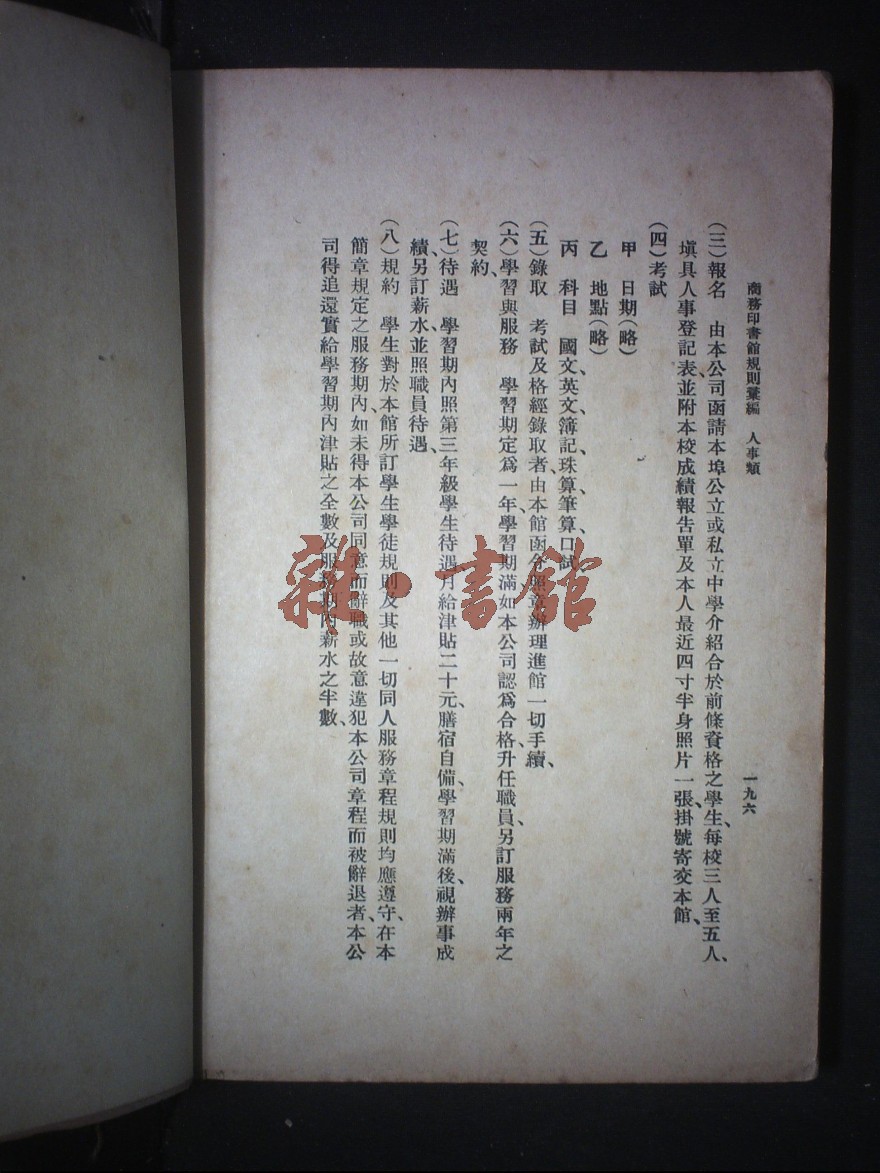 商務印書館規則彙編　人事類
一九六
（三）報名　由本公司函請本埠公立或私立中學介紹合於前條資格之學生、每校三人至五人、
填具人事登記表、並附本校成績報告單及本人最近四寸半身照片一張、掛號寄交本館、
（四）考試
甲　日期（略）
乙　地點（略）
丙　科目　國文、英文、簿記、珠算、筆算、口試、
（五）錄取　考試及格經錄取者、由本館函介照章辦理進館一切手續、
（六）學習與服務　學習期定爲一年、學習期滿、如本公司認爲合格、升任職員、另訂服務兩年之
契約、
（七）待遇　學習期內照第三年級學生待遇、月給津貼二十元、膳宿自備、學習期滿後、視辦事成
績、另訂薪水、並照職員待遇、
（八）規約　學生對於本館所訂學生學徒規則及其他一切同人服務章程規則均應遵守、在本
簡章規定之服務期內、如未得本公司同意而辭職或故意違犯本公司章程而被辭退者、本公
司得追還實給學習期內津貼之全數及服務期內薪水之半數、
雜·書館